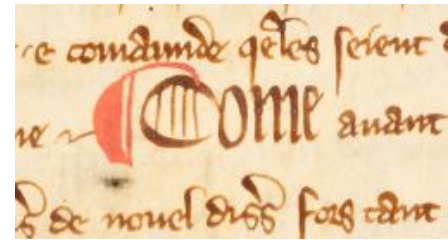 e comaunde qeles seient
ne ¶ Come auant
s de nouel diss fors tant